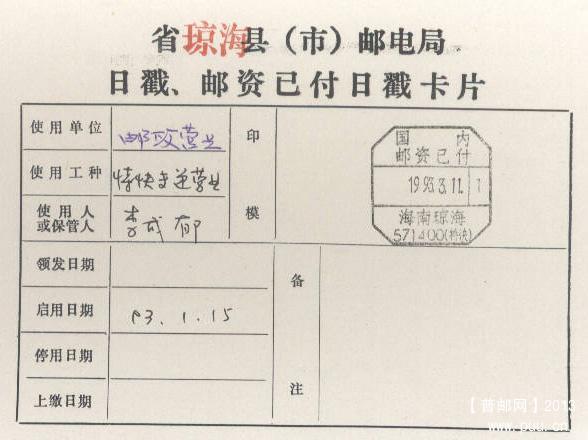 省琼海县(市)邮电局
日戳、邮资已付日戳卡片
使用单位 邮政营业
印模
国内
邮资已付
1993.3.11. 1
海南琼海
571400(特快)
使用工种 特快专递营业
使用人
或保管人
李成郁
领发日期
备注
启用日期 93.1.15
停用日期
上缴日期
【普邮网】2013
www.puu.cn